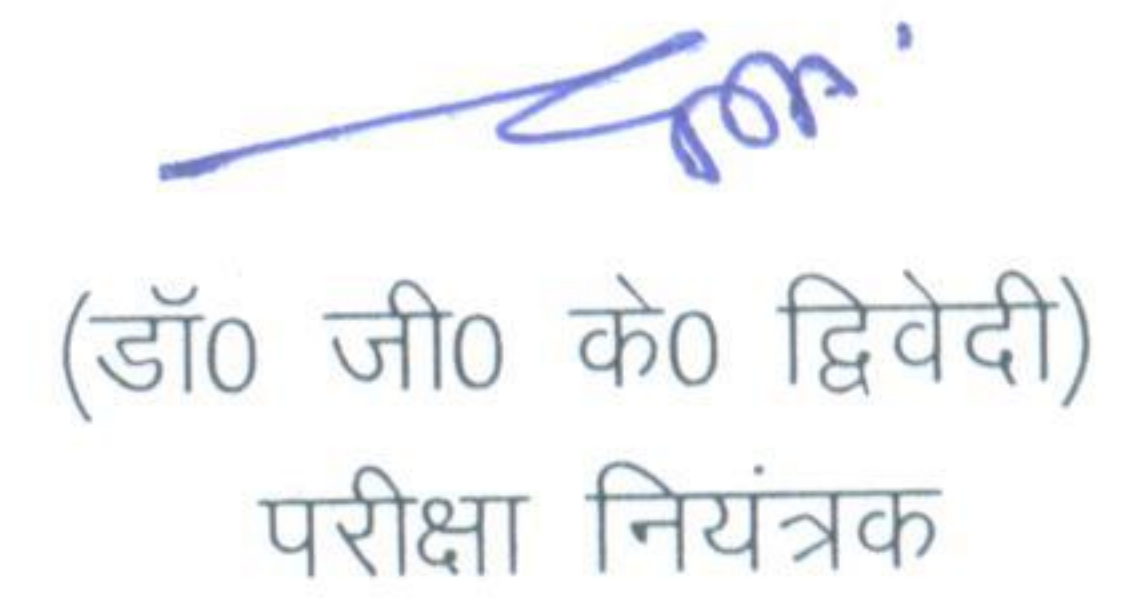 (डॉ0 जी0 के0 द्विवेदी)
परीक्षा नियंत्रक